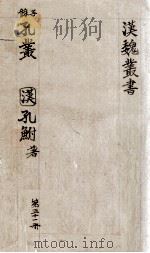 漢魏叢書
子餘
孔叢
漢孔鮒著
第三十二冊